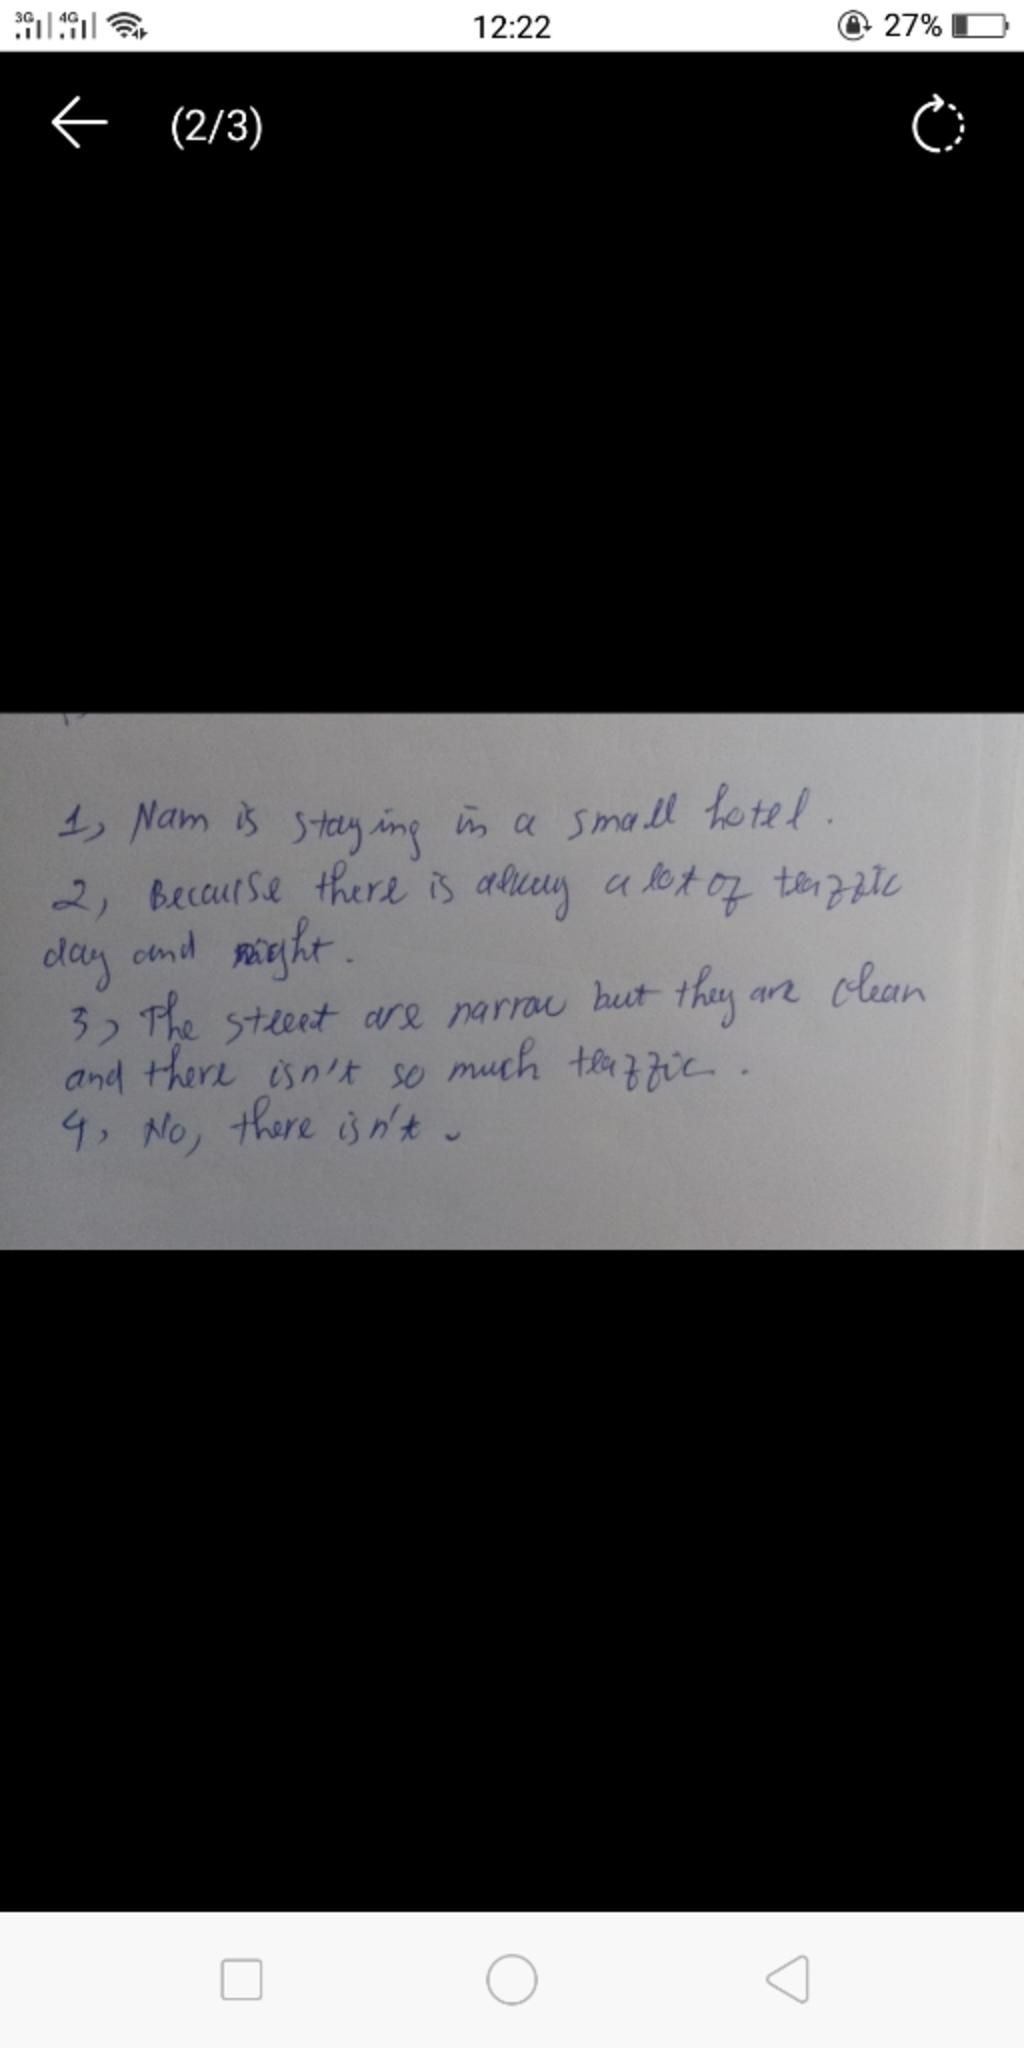 3G 4G 12:22 27%
(2/3)
1, Nam is staying in a small hotel.
2, Because there is alway a lot of traffic
day and night.
3, The street are narrow but they are clean
and there isn't so much traffic.
4, No, there isn't.